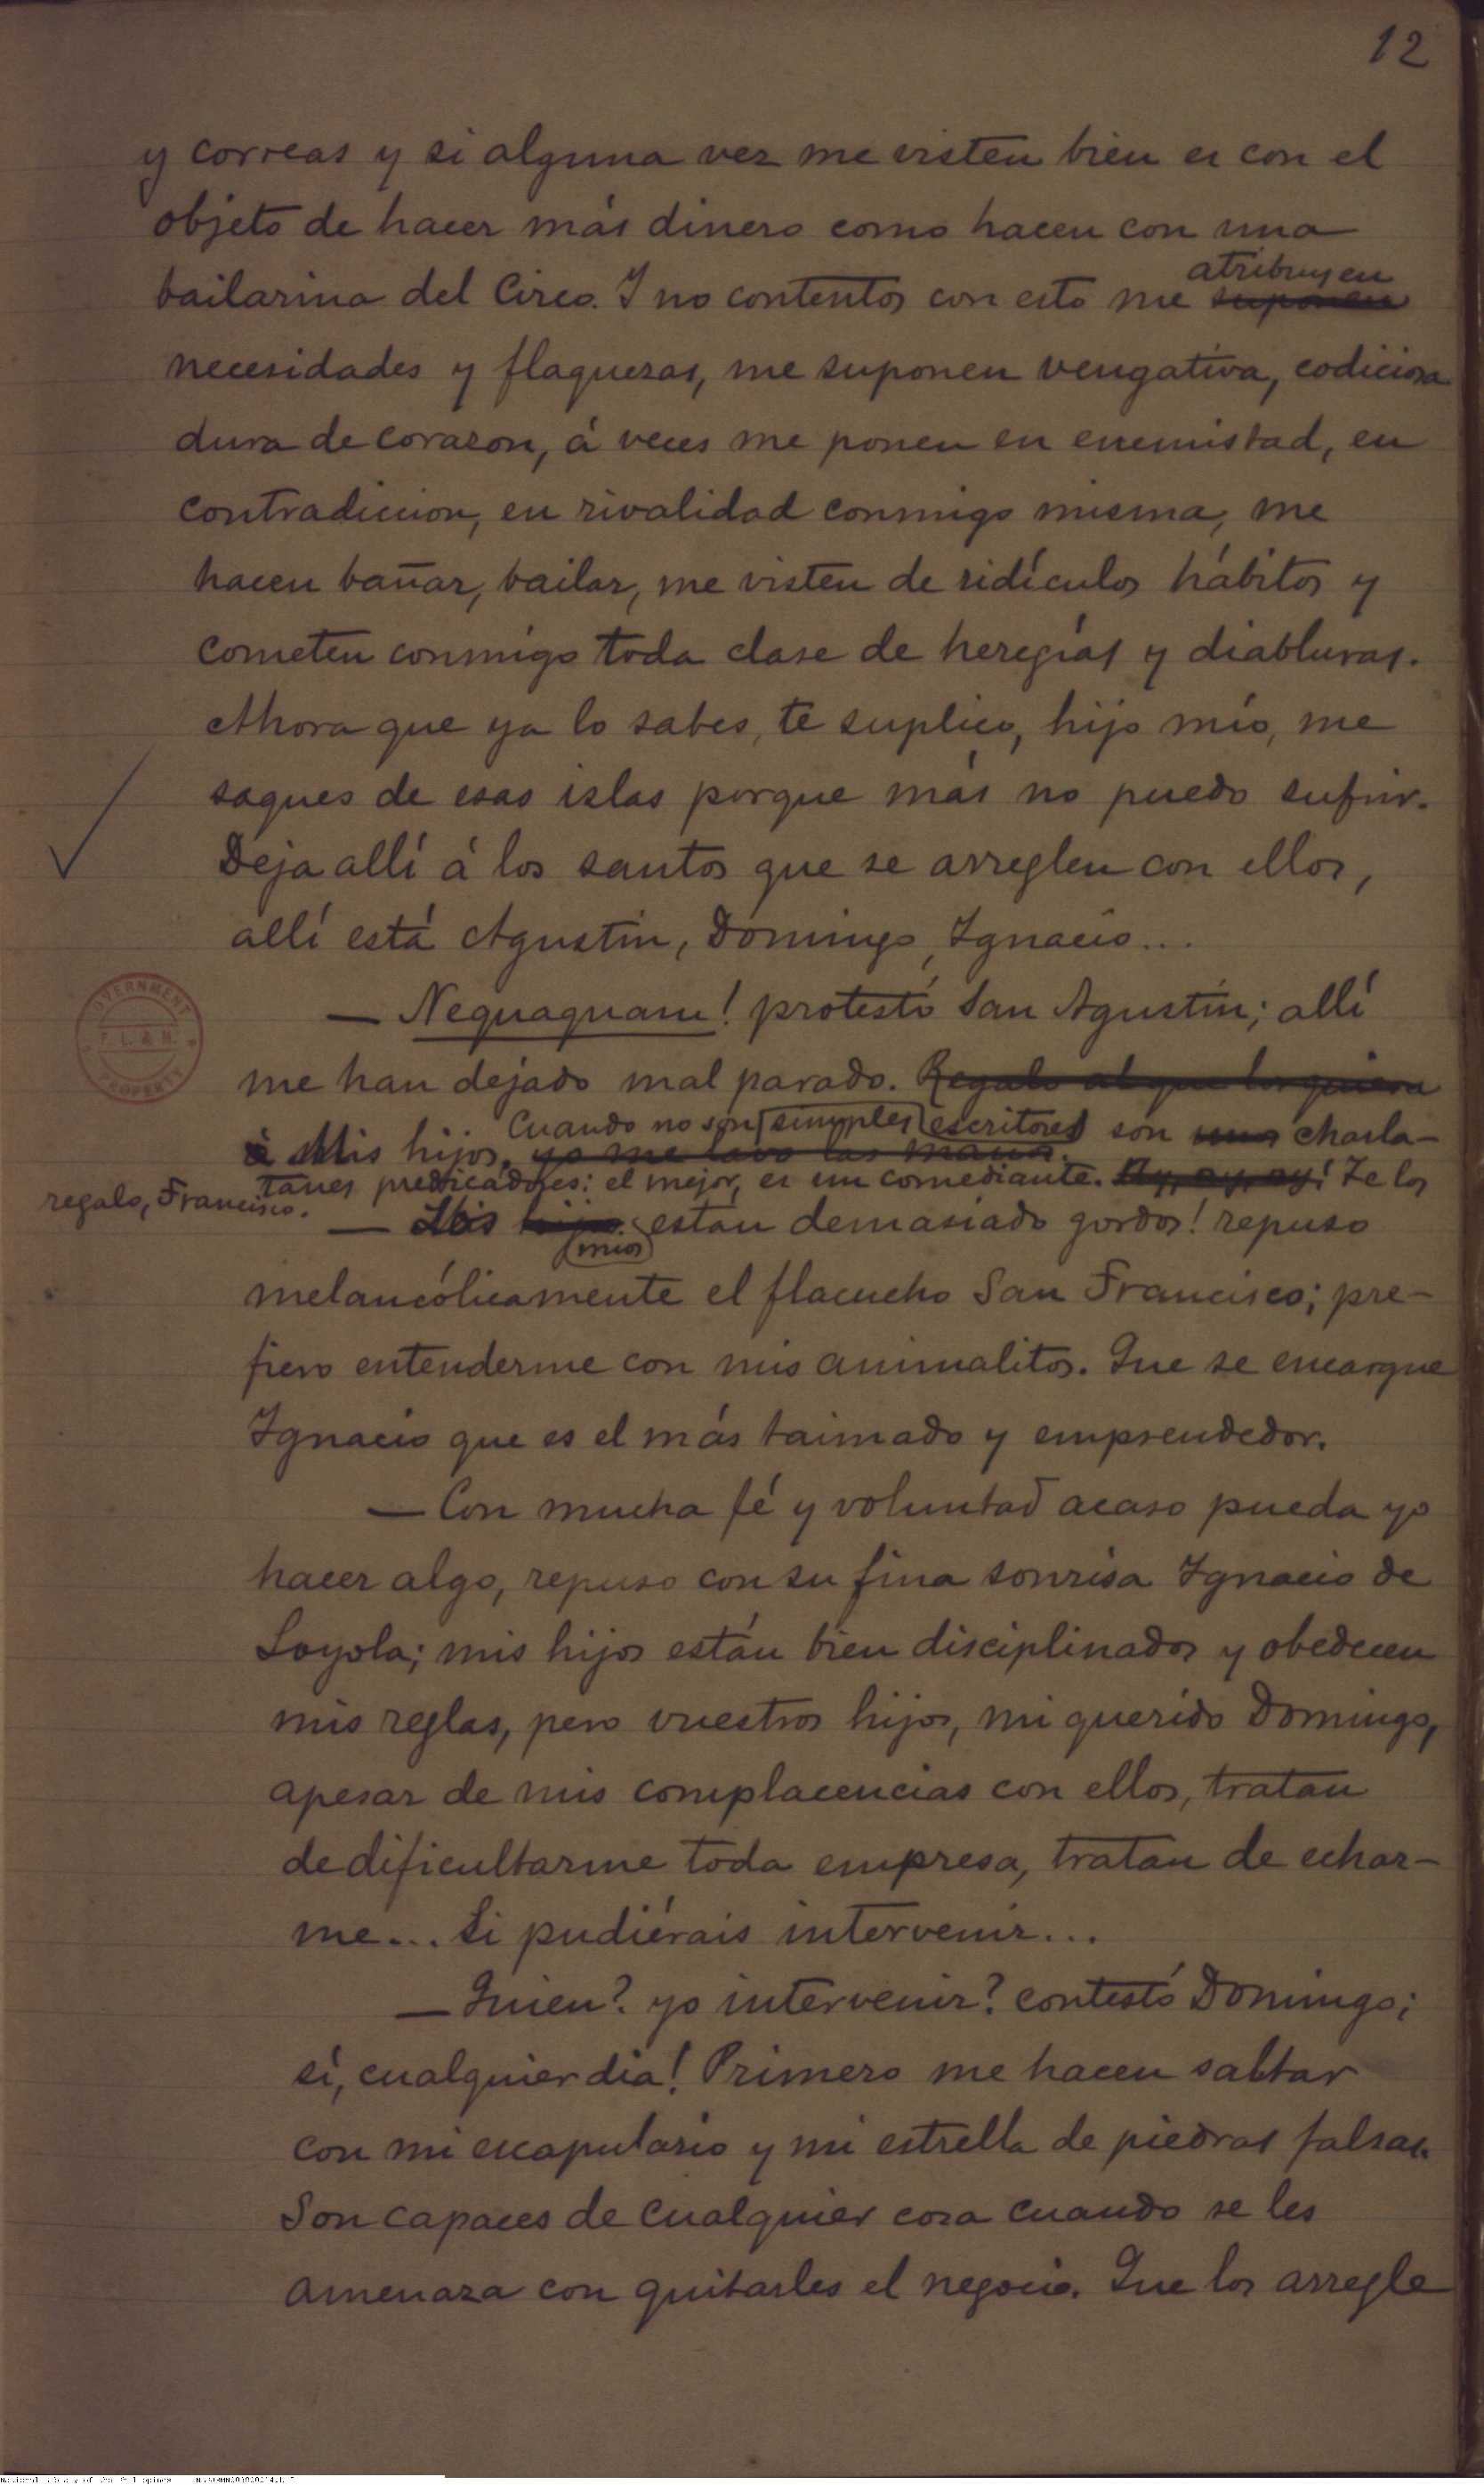 12
y correas y si alguna vez me visten bien es con el
objeto de hacer más dinero como hacen con una
bailarina del Circo. Y no contentos con esto me suponen atribuyen
necesidades y flaquezas, me suponen vengativa, codiciosa
dura de corazon, á veces me ponen en enemistad, en
contradiccion, en rivalidad conmigo misma, me
hacen bañar, bailar, me visten de ridículos hábitos y
cometen conmigo toda clase de heregías y diabluras.
Ahora que ya lo sabes, te suplico, hijo mío, me
saques de esas islas porque más no puedo sufrir.
Deja allí á los santos que se arreglen con ellos,
allí está Agustin, Domingo, Ignacio...
— Nequaquam! protestó San Agustín; allí
GOVERNMENT
PROPERTY
me han dejado mal parado. Regalo al que los quiera
Cuando no son simples escritores son unos charla-
á Mis hijos, yo me lavo las manos.
tanes predicadores: el mejor, es un comediante. Ay, ay, ay! Te los
regalo, Francisco.
— Los hijos estan demasiado gordos! repuso
mios
melancólicamente el flacucho San Francisco; pre-
fiero entenderme con mis animalitos. Que se encargue
Ignacio que es el más taimado y emprendedor.
— Con mucha fé y voluntad acaso pueda yo
hacer algo, repuso con su fina sonrisa Ignacio de
Loyola; mis hijos están bien disciplinados y obedecen
mis reglas, pero vuestros hijos, mi querido Domingo,
apesar de mis complacencias con ellos, tratan
de dificultarme toda empresa, tratan de echar-
me... Si pudiérais intervenir...
— Quien? yo intervenir? contestó Domingo;
sí, cualquier dia! Primero me hacen saltar
con mi escapulario y mi estrella de piedras falsas.
Son capaces de cualquier cosa cuando se les
amenaza con quitarles el negocio. Que los arregle